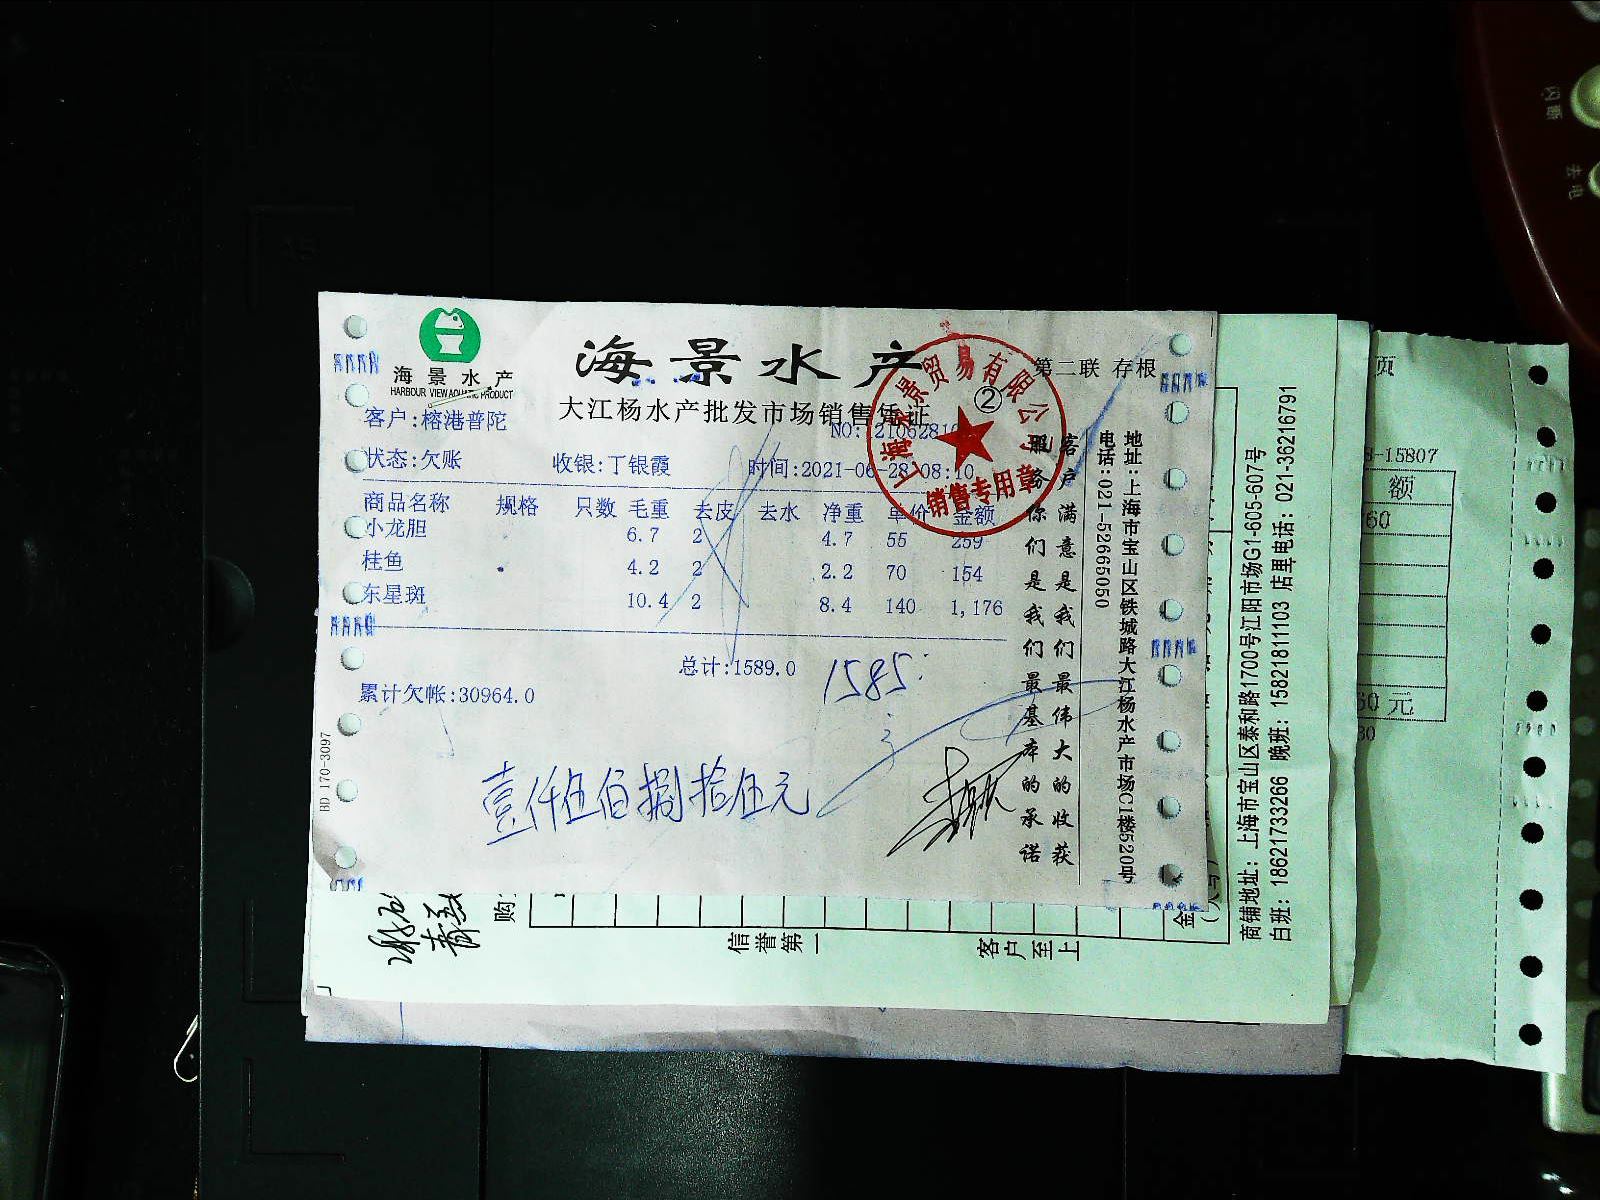 海景水产
HARBOUR VIEW AQUATIC PRODUCT
海景水产
大江杨水产批发市场销售凭证
第二联 存根
②
上海海景贸易有限公司
销售专用章
客户:榕港普陀
NO: 2106281
状态:欠账 收银:丁银霞 时间:2021-06-28 08:10
商品名称 规格 只数 毛重 去皮 去水 净重 单价 金额
小龙胆 6.7 2 4.7 55 259
桂鱼 4.2 2 2.2 70 154
东星斑 10.4 2 8.4 140 1,176
总计:1589.0
1585
累计欠帐:30964.0
壹仟伍佰捌拾伍元
BD 170-3097
客户满意是我们最伟大的收获
服务你们是我们最基本的承诺
地址:上海市宝山区铁城路大江杨水产市场C1楼520号
电话:021-52665050
购
信誉第一
客户至上
金
商铺地址: 上海市宝山区泰和路1700号江阳市场G1-605-607号
白班: 18621733266 晚班: 15821811103 店里电话: 021-36216791
页
-15807
额
60
60 元
30
闪断
去电